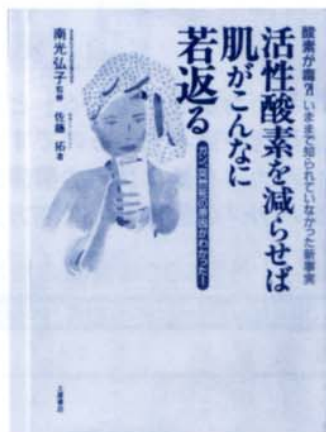 酸素が毒?! いままで知られていなかった新事実
活性酸素を減らせば
肌がこんなに
若返る
ガン、突然死の原因がわかった!
南光弘子 監修
佐藤 拓 著